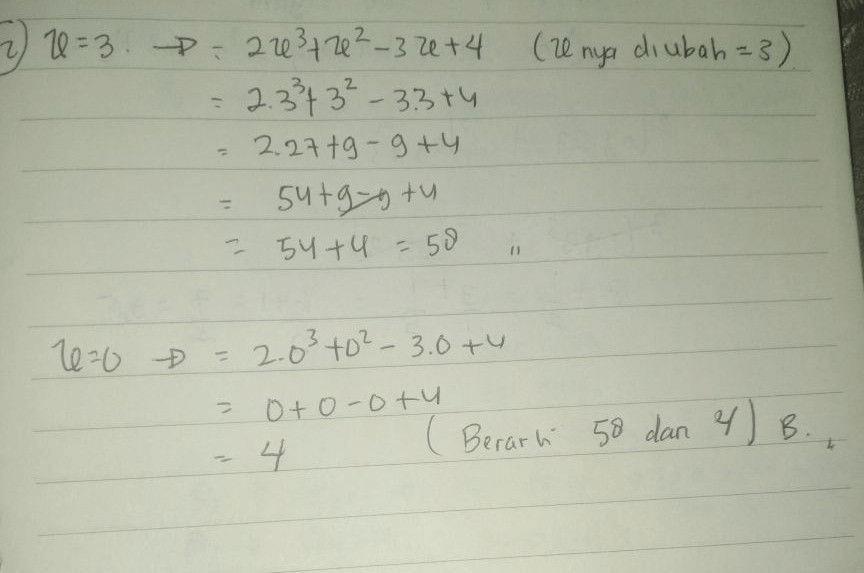 2) x=3. → = 2x³+x²-3x+4 (x nya diubah = 3)
= 2.3³+3²-3.3+4
= 2.27+9-9+4
= 54+9-9+4
= 54+4 = 58 "
x=0 → = 2.0³+0²-3.0+4
= 0+0-0+4
= 4 (Berarti 58 dan 4) B.